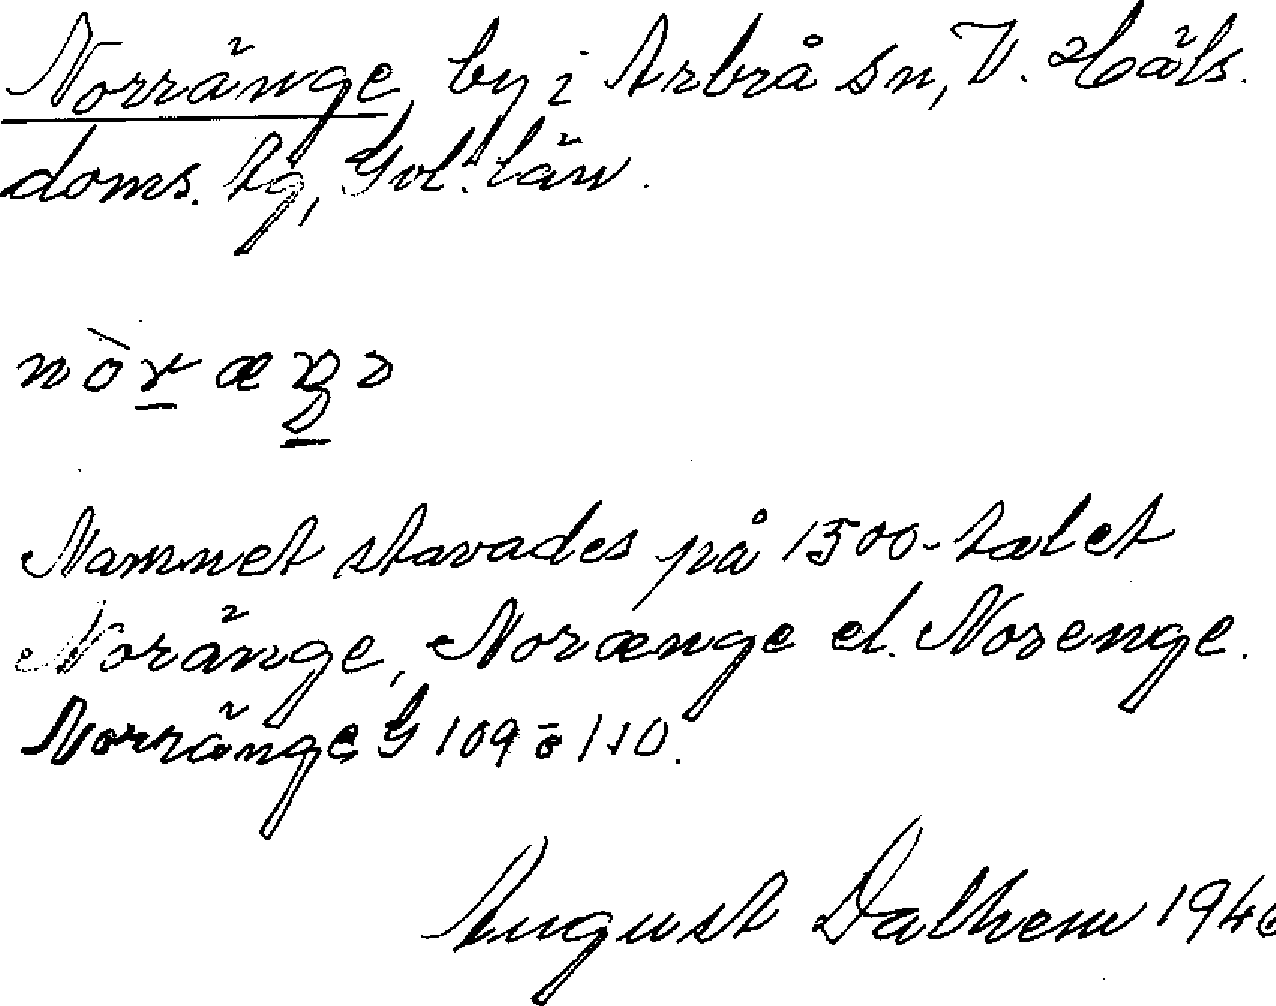 Norränge, by i Arbrå sn, V. Häls.
doms. tg, Gvl. län.
Namnet stavades på 1500-talet
Noränge, Norænge el. Norenge.
Norränge G 109 o 110.
August Dalhem